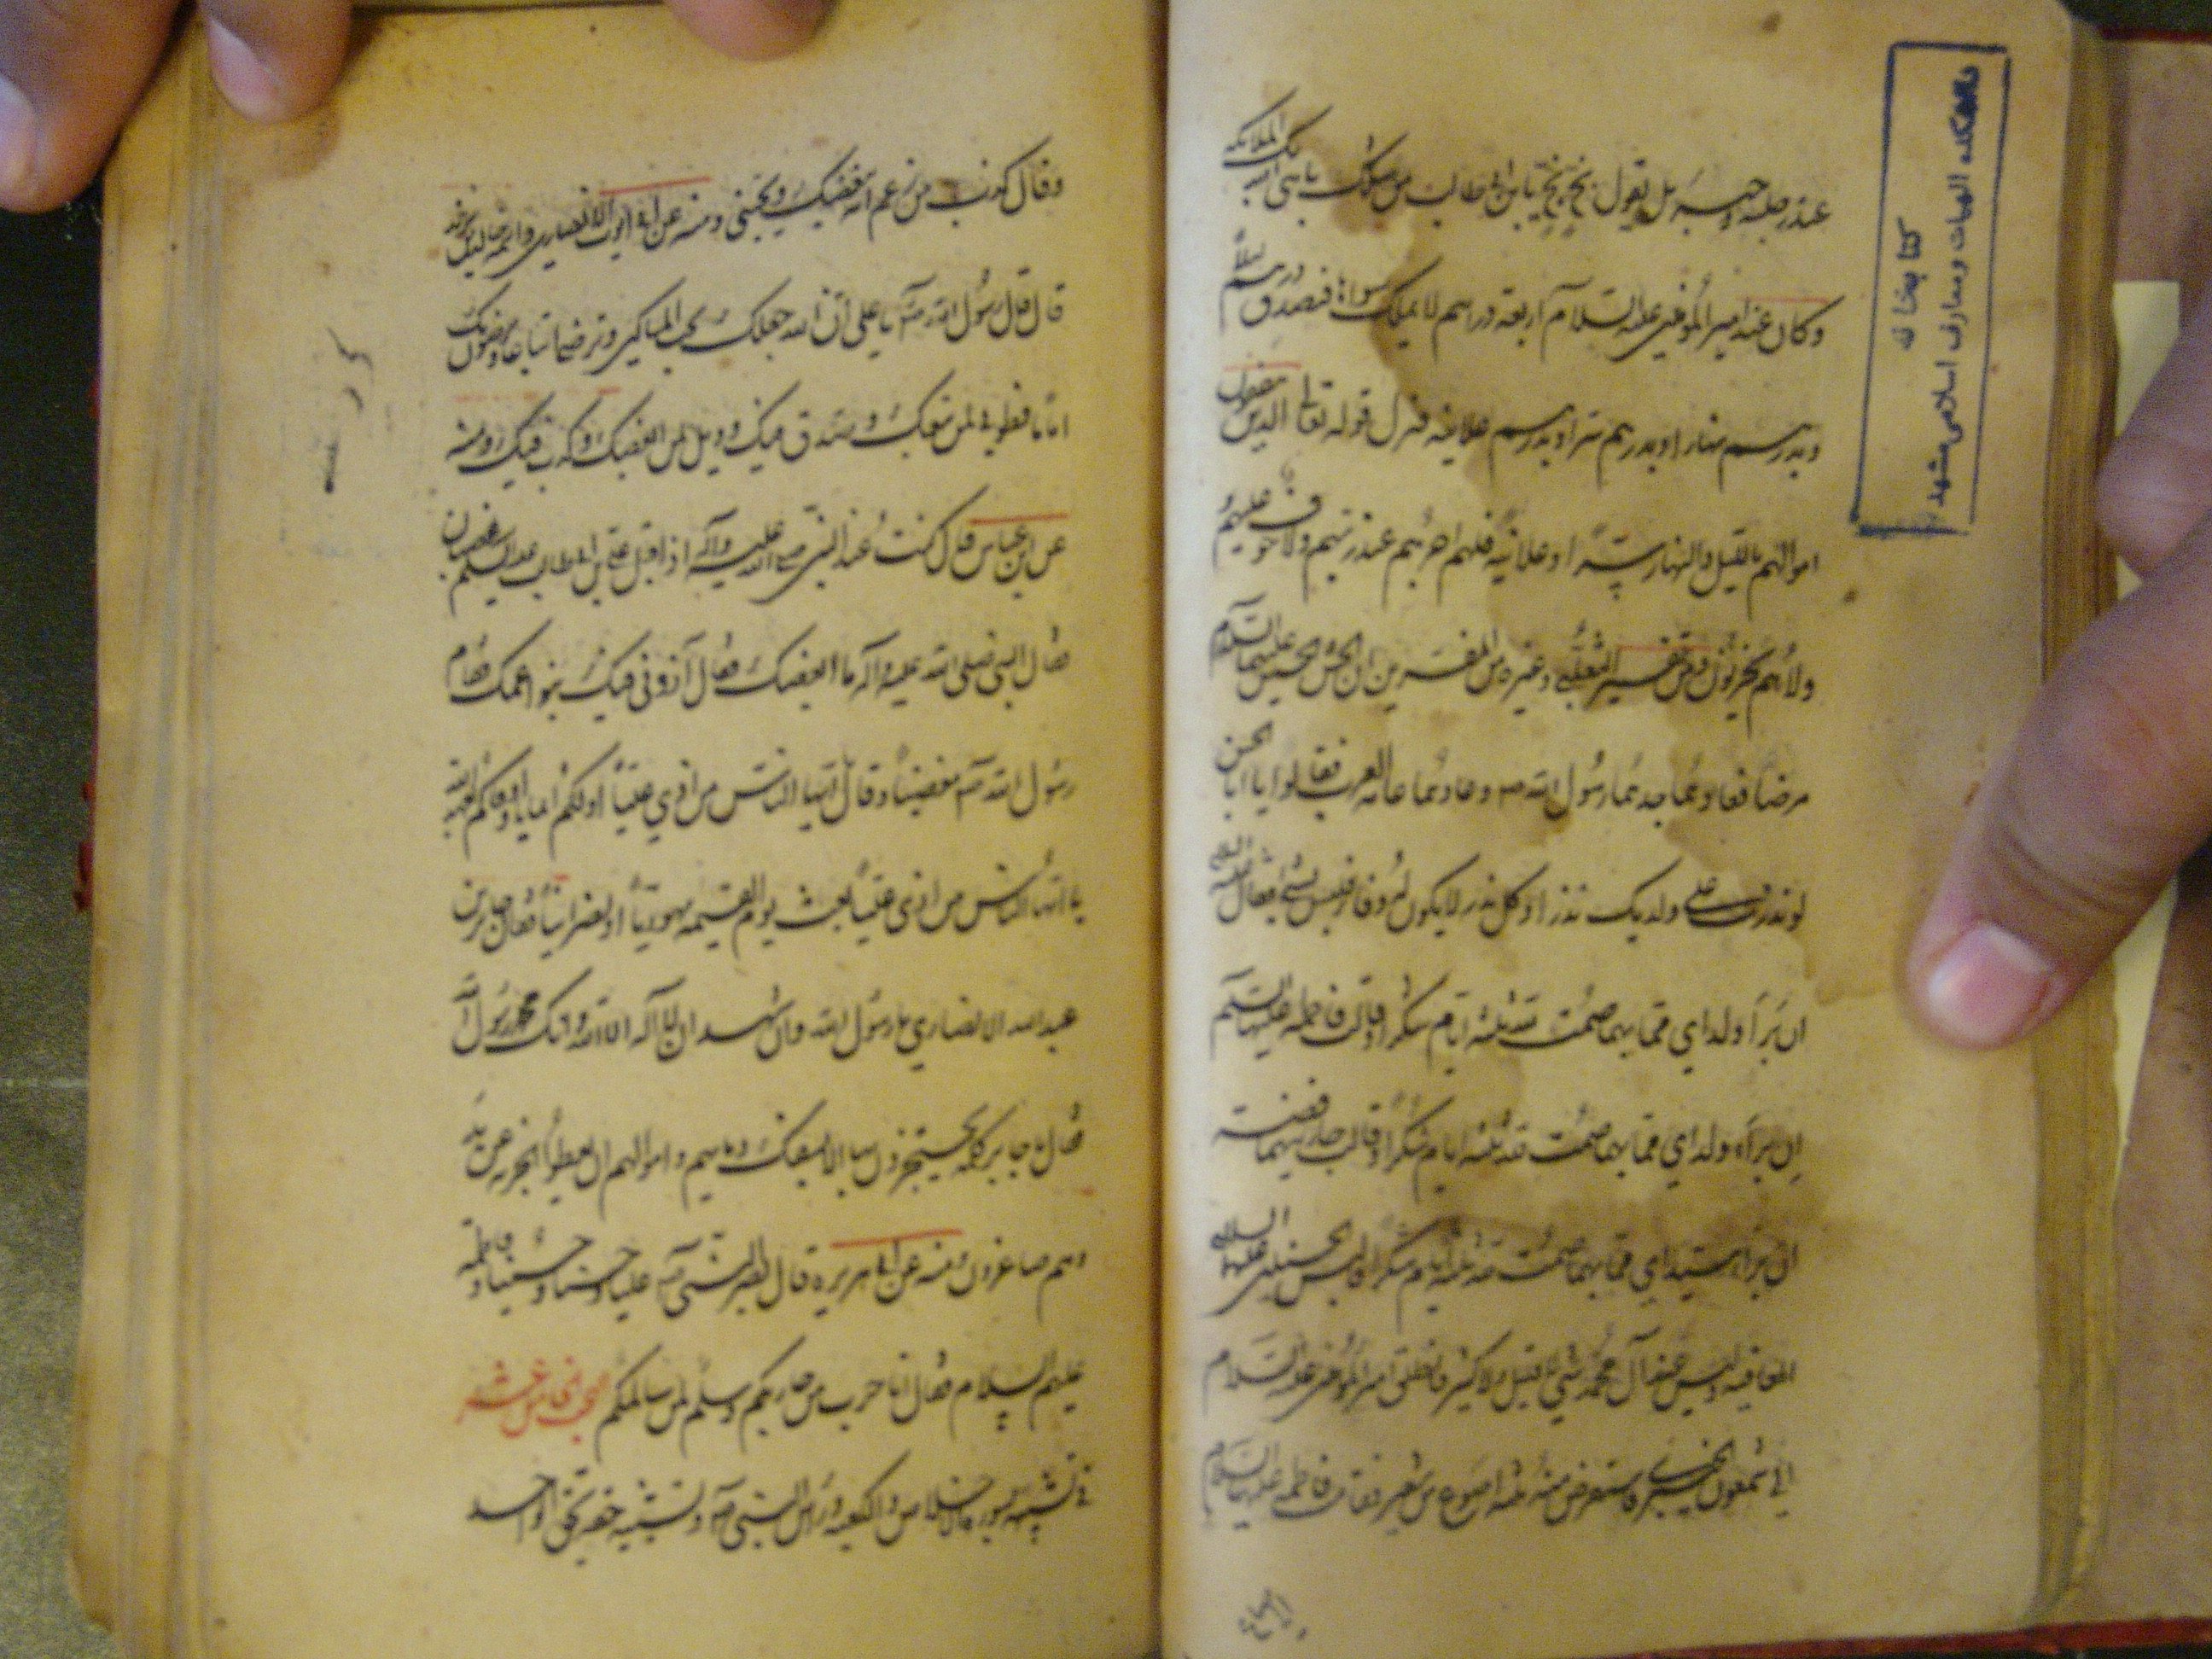 عند رجليه وجبرئيل يقول بخ بخ يا بن ابيطالب من مثلك يباهي الله بك الملائكة
وكان عند امير المؤمنين عليه السلام اربعة دراهم لا يملك سواها فتصدق بدرهم ليلاً
وبدرهم نهارا وبدرهم سرا وبدرهم علانية فنزل قوله تعالى الذين ينفقون
اموالهم بالليل والنهار سرّاً وعلانية فلهم اجرهم عند ربهم ولا خوف عليهم
ولا هم يحزنون وفي تفسير الثعلبي وغيره من المفسرين ان الحسن والحسين عليهما السلام
مرضا فعادهما جدهما رسول الله ص وعادهما عامة العرب فقالوا يا ابا الحسن
لو نذرت على ولديك نذرا وكل نذر لا يكون له وفا فليس بشئ فقال عليه السلم
ان برأ ولداي مما بهما صمت لله ثلثة ايام شكرا وقالت فاطمة عليها السلم
ان برأ ولداي مما بهما صمت لله ثلثة ايام شكرا وقالت جاريتهما فضة
ان برأ سيداي مما بهما صمت لله ثلثة ايام شكرا فالبس الحسنين عليهما السلام
العافية وليس عند آل محمد شئ قليل ولا كثير فانطلق امير المؤمنين عليه السلام
الى شمعون الخيبري فاستقرض منه ثلثة اصوع من شعير فقامت فاطمة عليها السلام
وقال كذب من زعم انه يبغضك ويحبني ومنه عن ابي ايوب الانصاري واسمه خالد بن زيد
قال قال رسول الله ص يا علي ان الله جعلك تحب المساكين وترضى بهم اتباعا ويرضون بك
اماما فطوبى لمن تبعك وصدق فيك وويل لمن ابغضك وكذب فيك ومنه
عن ابن عباس قال كنت عند النبي صلى الله عليه وآله اذ اقبل علي بن ابيطالب عليه السلم غضبان
فقال النبي صلى الله عليه وآله ما اغضبك فقال آذوني فيك بنو عمك فقام
رسول الله ص مغضبا وقال ايها الناس من اذي عليّاً اولكم ايمانا واوفاكم بعهد الله
يا ايها الناس من اذى عليّاً بعث يوم القيمة يهوديّاً او نصرانيّاً فقال جابر بن
عبد الله الانصاري يا رسول الله وان شهد ان لا اله الا الله وانك محمد رسول الله
فقال يا جابر كلمة يحتجزون بها الا يسفك دماهم واموالهم ان يعطوا الجزية عن يد
وهم صاغرون ومنه عن ابي هريرة قال نظر النبي ص عليا وحسنا وحسينا وفاطمة
عليهم السلام فقال انا حرب من حاربكم وسلم لمن سالمكم